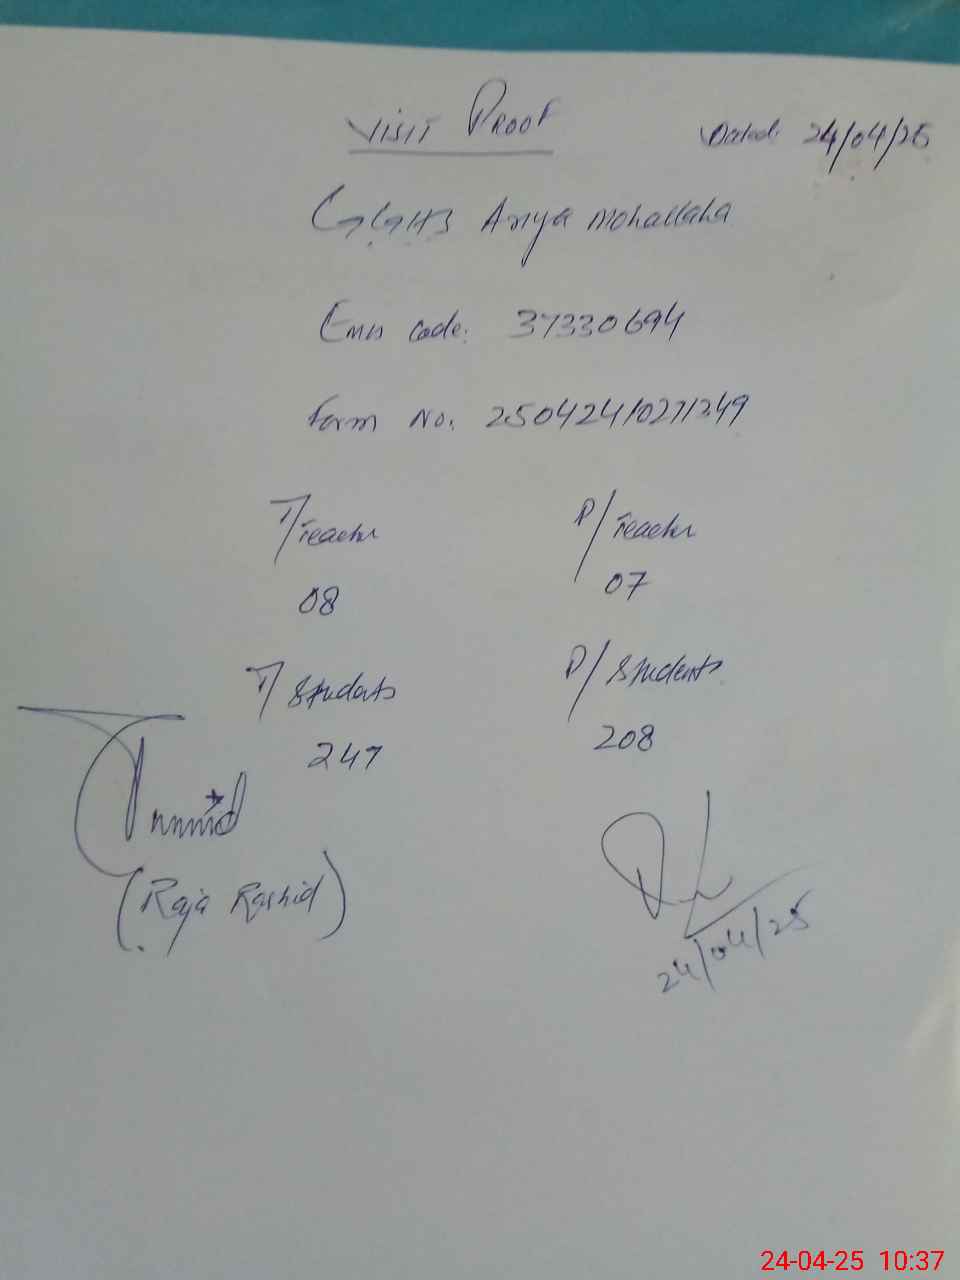 Visit Proof Dated: 24/04/25
GGHS Ariya Mohallaha
Emis Code: 37330694
Form No. 25042410271349
T/Teacher P/Teacher
08 07
T/Students P/Students
247 208
(Raja Rashid)
24/04/25
24-04-25 10:37